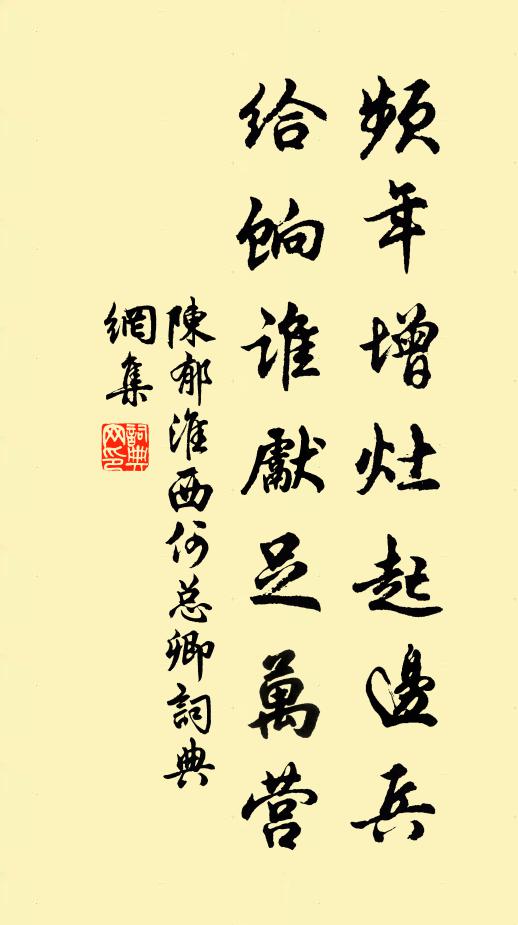 頻年增灶起邊兵
給餉誰獻足萬营
陳郁淮西何总卿詞典
網集
詞典
网印